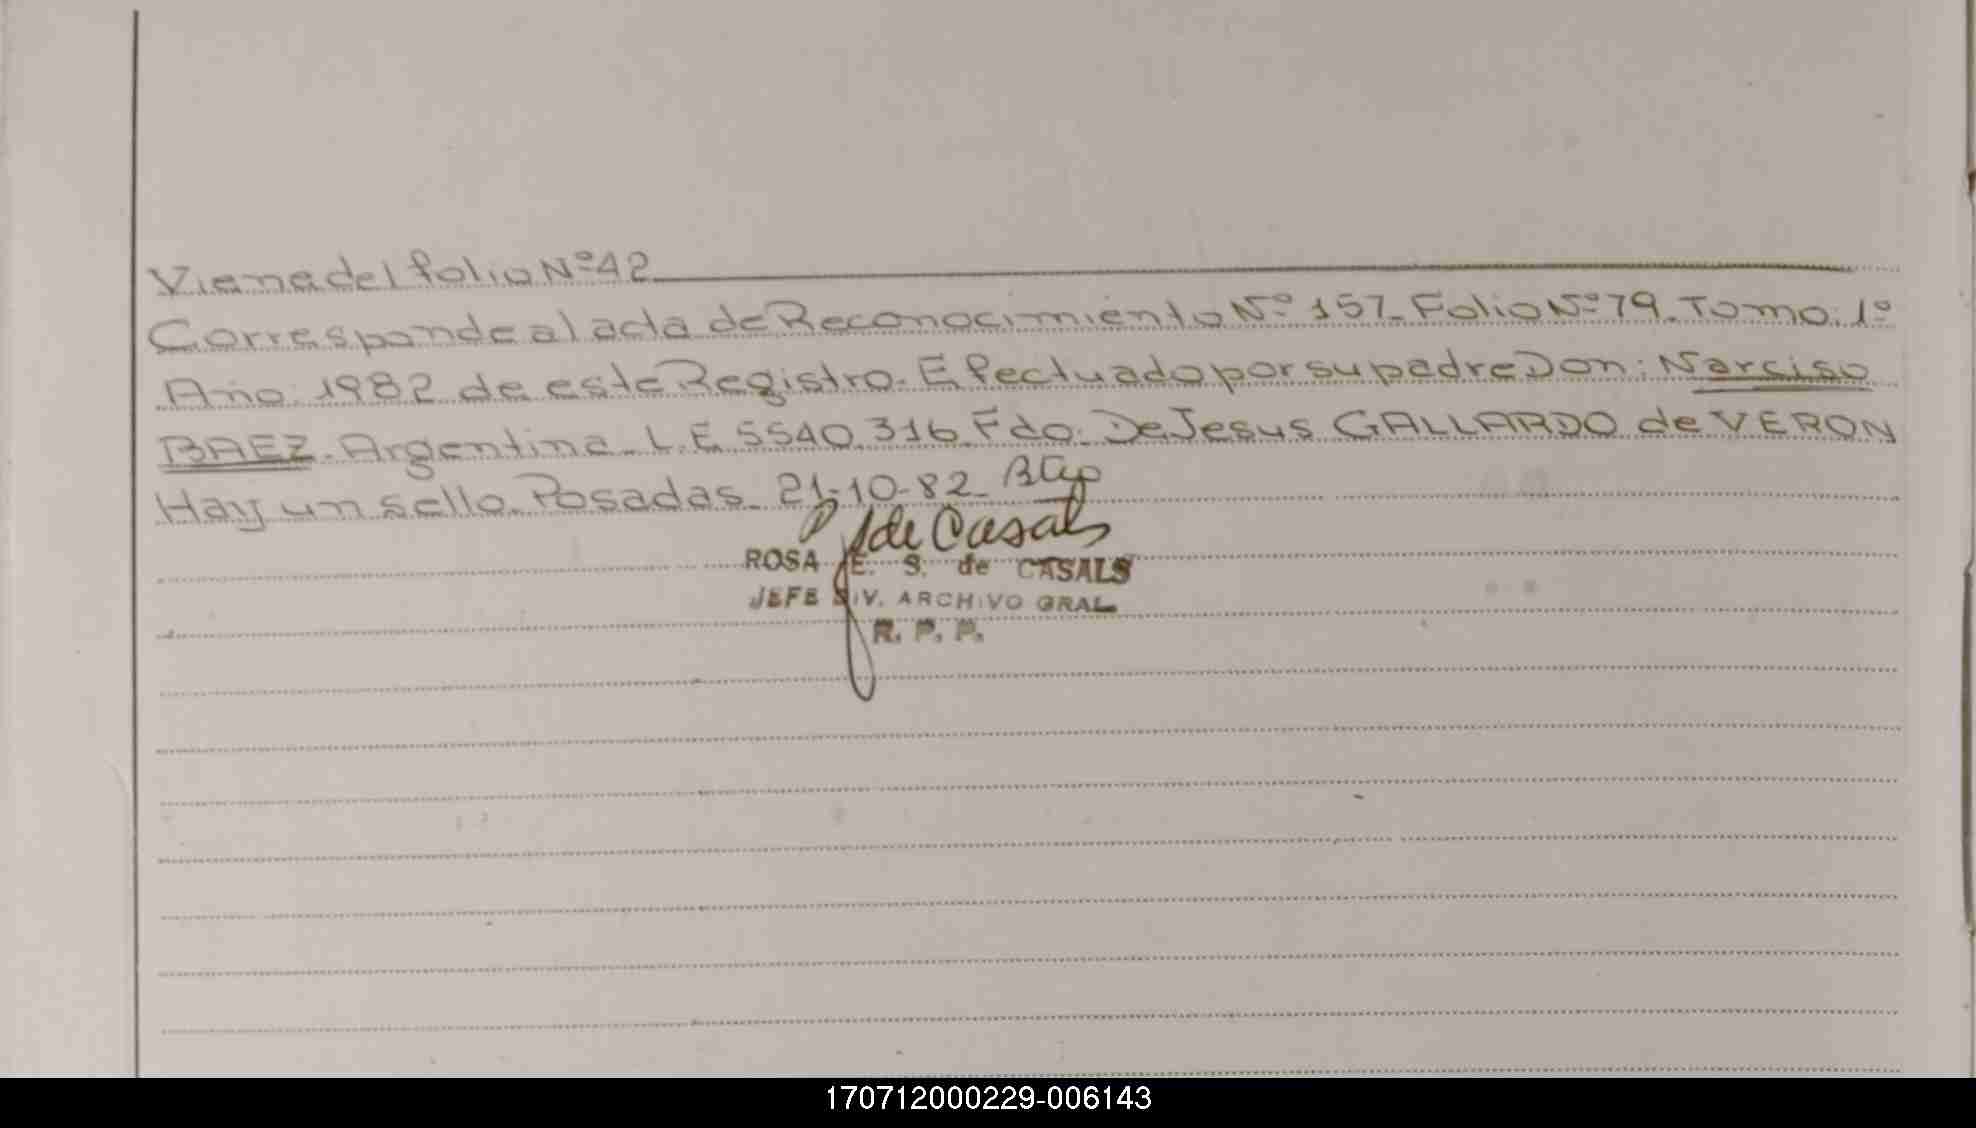 Viene del folio Nº 42
Corresponde al acta de Reconocimiento Nº 157. Folio Nº 79. Tomo: 1º
Año: 1982 de este Registro. Efectuado por su padre Don: Narciso
BAEZ. Argentina. L.E. 5540.316. Fdo: De Jesus GALLARDO de VERON
Hay un sello. Posadas. 21-10-82.
de Casals
ROSA E. S. de CASALS
JEFE DIV. ARCHIVO GRAL
R. P. P.
170712000229-006143